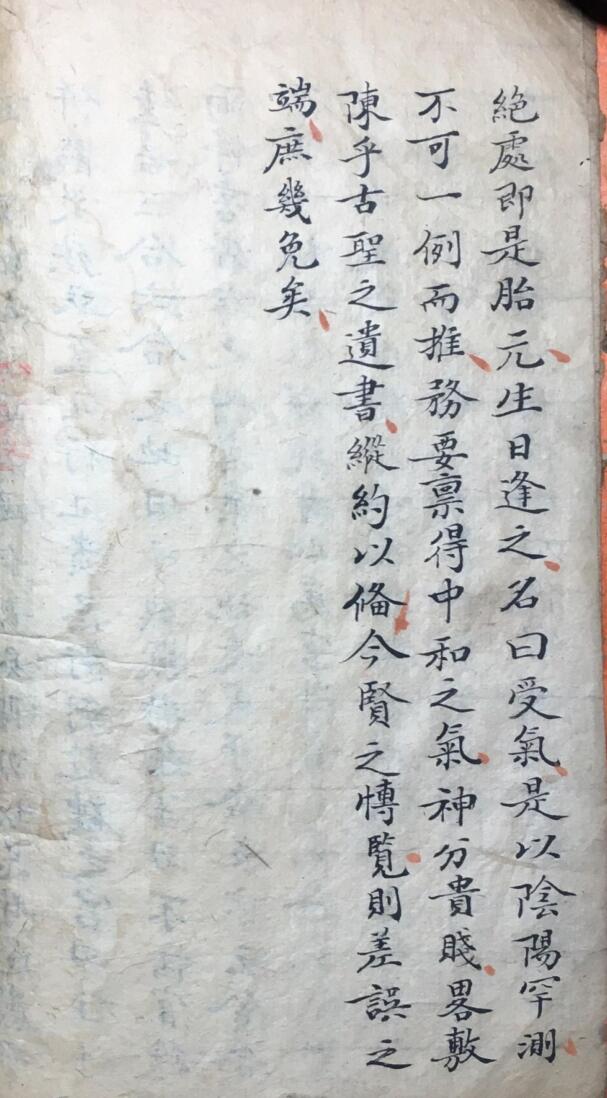 絕處即是胎元生日逢之名曰受氣是以陰陽罕測
不可一例而推務要禀得中和之氣神分貴賤畧敷
陳乎古聖之遺書縱約以俻今賢之愽覽則差誤之
端庶幾免矣